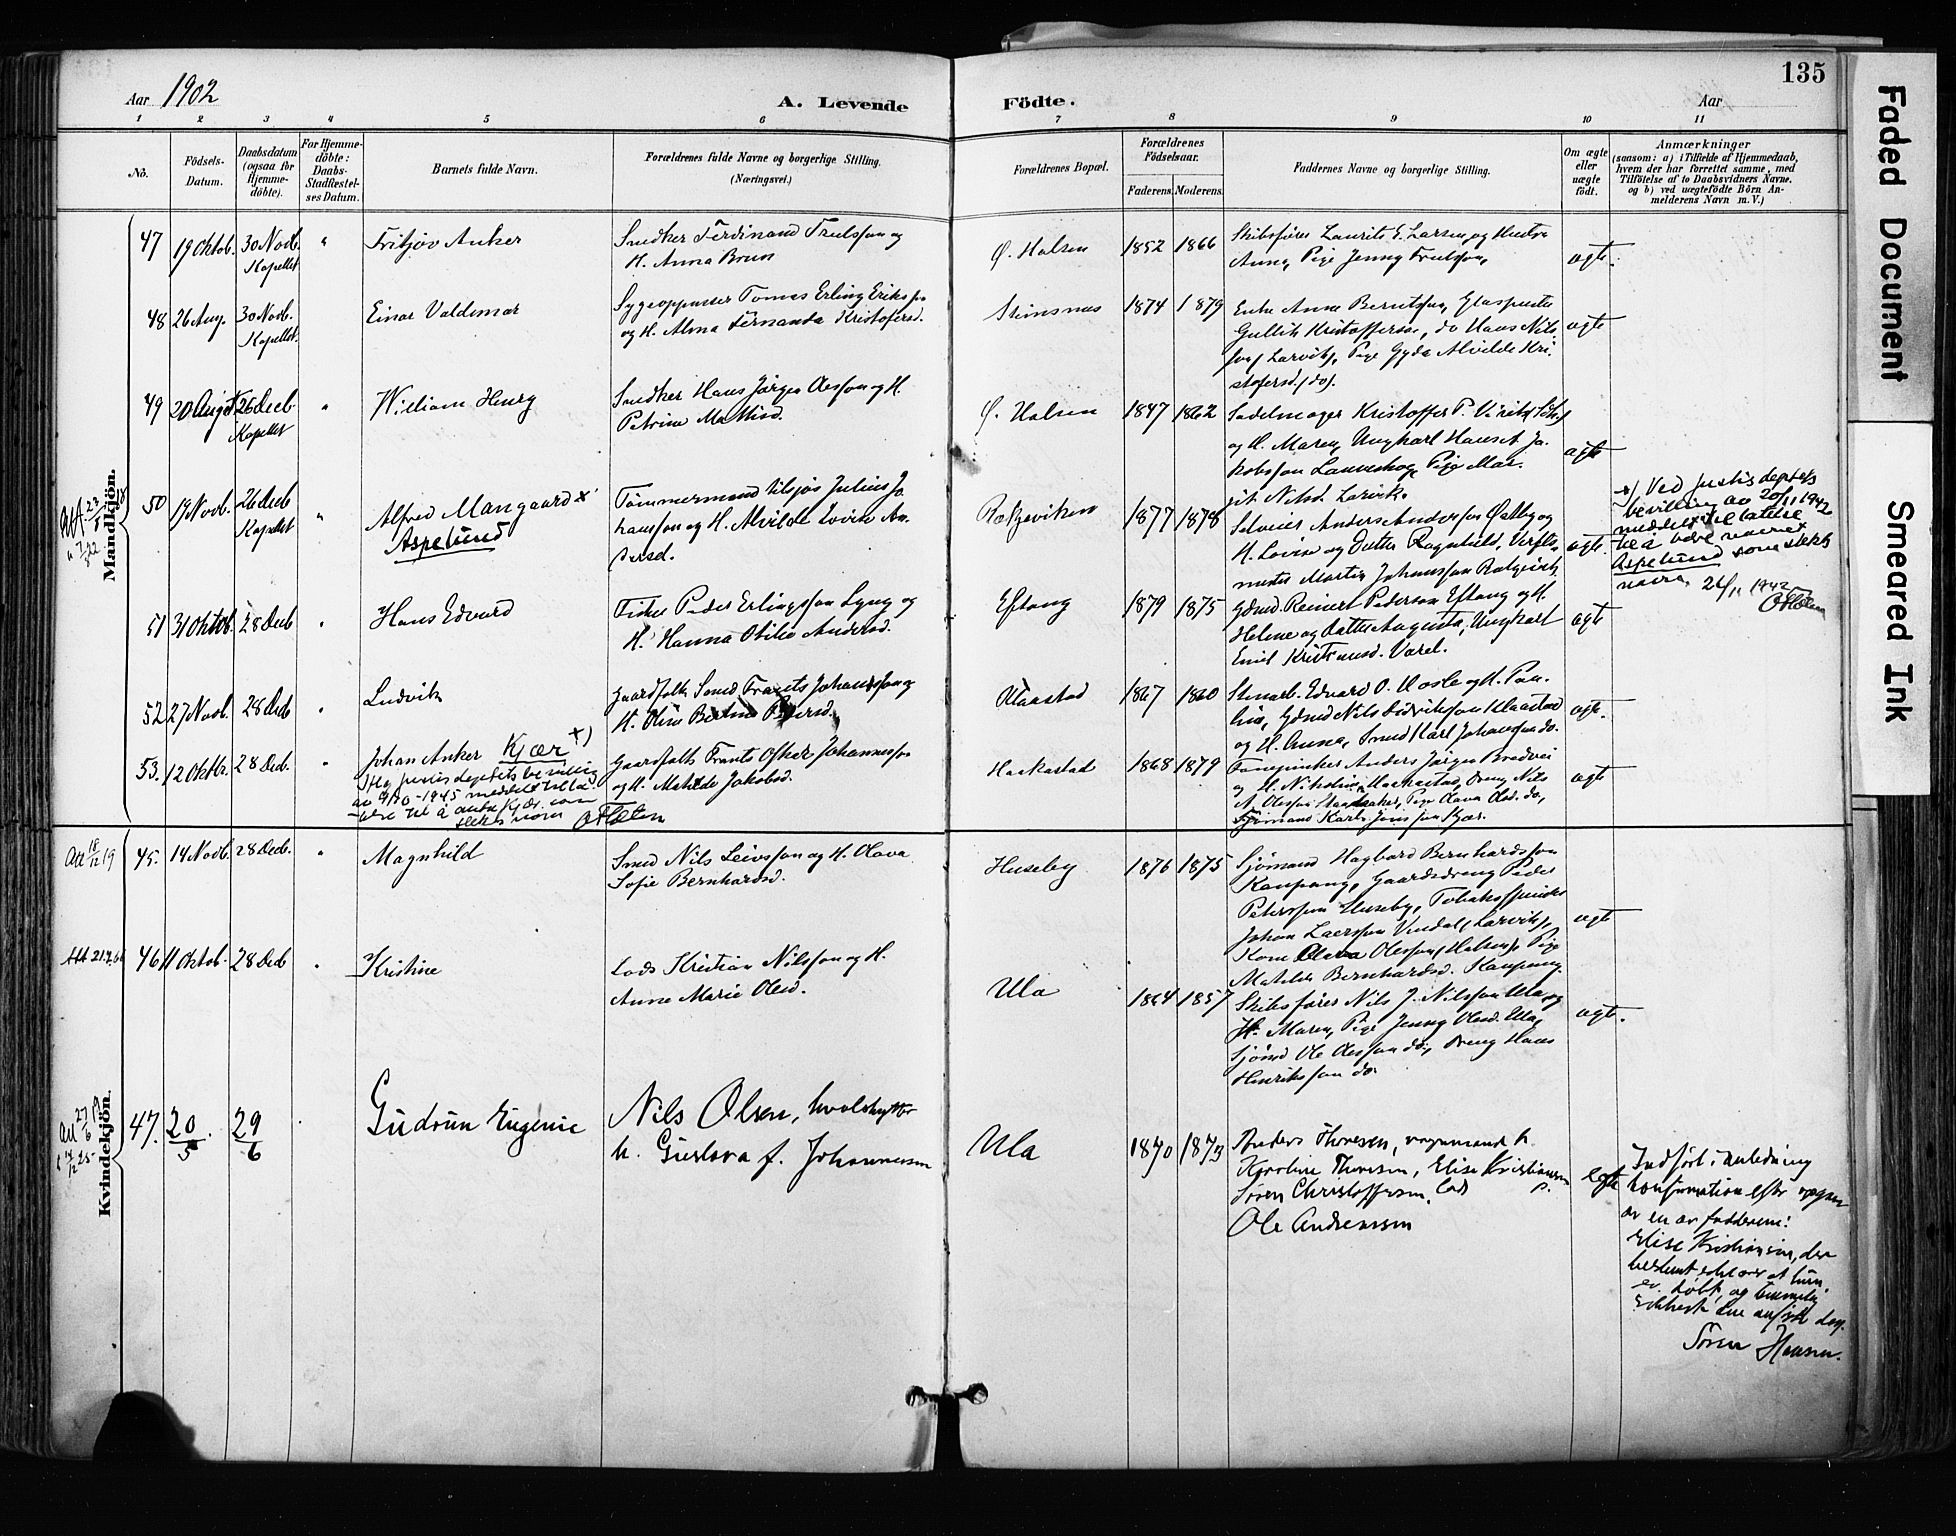 Aar 1902
A. Levende Födte.
Aar
135
1 2 3 4 5 6 7 8 9 10 11
No.
Födsels-Datum.
Daabsdatum (ogsaa for Hjemme-döbte).
For Hjemme-döbte: Daabs-Stadfæstel-ses Datum.
Barnets fulde Navn.
Forældrenes fulde Navne og borgerlige Stilling. (Næringsvei.)
Forældrenes Bopæl.
Forældrenes Födselsaar.
Faderens. Moderens.
Faddernes Navne og borgerlige Stilling.
Om ægte eller uægte födt.
Anmærkninger
(saasom: a) i Tilfælde af Hjemmedaab,
hvem der har forrettet samme, med
Tilföielse af to Daabsvidners Navne.
og b) ved uægtefödte Börn An-
melderens Navn m. V.)
Mandkjön.
47 19 Oktob. 30 Novb. Kapellet " Fritjov Anker
Snedker Ferdinand Trulsson og
H. Anna Brun
Ø. Halsen 1852 1866
Skibsfører Laurits E. Larsen og Hustru
Anna, Pige Jenny Trulsson,
ægte.
48 26 Aug. 30 Novb. Kapellet. Einar Valdemar
Sygeopvasser Tomas Erling Eriksson
og H. Alma Fernanda Kristofersd.
Stensnæs 1874 1879
Enke Anne Berntsson, Glaspuster
Gullik Kristoffersen, do Hans Nils-
son, Larvik, Pige Gyda Alvilde Kri-
stofersd. (do).
ægte
49 20 August 26 Decb. Kapellet " William Henry
Snedker Hans Jørgen Olesson og H.
Petrine Mathisd.
Ø. Halsen 1847 1862
Sadelmager Kristoffer P.
og H. Maren, Ungkarl Hans A. Ja-
kobsson Lauveskog, Pige Mar-
git Nilsd. Larvik.
ægte
50 19 Novb. 26 Decb Kapellet " Alfred Mangaard x)
Aspelund
Tømmermand tilsjøs Julius Jo-
hansson og H. Alvilde Lovise An-
dersd.
Rekkeviken 1877 1878
Selveier Anders Andersson Østby og
H. Lovise og Datter Ragnhild, Verfts-
mester Martin Johansson Rækkevik,
ægte.
x) Ved justis deptets
bevilling av 20/11 1942
meddelt tillatelse
til å bære navnet
Aspelund som slekts
navn. 26/11 1942
51 31 Oktob. 28 Decb " Hans Edvard
Fisker Peder Erlingsson Lyng og
H. Hanna Otilie Andersd.
Eftang 1879 1875
Gdmd. Reinert Pederson Eftang og H.
Helene og Datter Augusta, Ungkarl
Emil Kristensd. Varel.
ægte
52 27 Novb. 28 Decb " Ludvik
Gaardfolk Smed Frants Johansson og
H. Oline Bertine Pedersd.
Klaastad 1867 1860
Stenarb. Edvard O. Hosle og H. Pau-
line, Gdmd Nils Didriksson Klaastad
og H. Anna, Smed Karl Johansson do.
ægte.
53. 12 Oktbr. 28 Decb. " Johan Anker Kjær x)
Iflg justisdeptets bevilling
av 9/10-1945 meddelt tilla-
telse til å anta Kjær som
slektsnavn
Gaardfolk Frants Oskar Johannesson
og H. Matilde Jakobsd.
Haakastad 1868 1879
Farvepinker Anders Jørgen Bredvei
og H. Nikoline Haakastad, Dreng Nils
A. Olesson Staansaker, Pige Olava Olsd. do,
Sjømand Karl Jonsson Kjær.
ægte
Kvindekjön.
Att 18/12 19 45. 14 Novb. 28 Decb. " Magnhild
Smed Nils Leivsson og H. Olava
Sofie Bernhardsd.
Huseby 1876 1875
Sjømand Hagbard Bernhardsson
Kaupang, Gaardsdreng Peder
Petersson Huseby, Tobaksspinder
Johan Laersson Vendal, Larvik,
Kone Olava Olesson, Halsen, Pige
Matilde Bernhardsd. Kaupang.
ægte
46 11 Oktob. 28 Decb " Kristine
Lods Kristian Nilsson og H.
Anne Marie Olsd.
Ula 1864 1857
Skibsfører Nils J. Nilsson Ula og
H. Maren, Pige Jenny Olsd. Ula,
Sjømd Ole Olesson do, Dreng Hans
Henriksson do
ægte.
47. 20/5. 29/6 Gudrun Eugenie
Nils Olsen, hvalskytter
h. Gustava f. Johannessen
Ula 1870 1873
Anders Thoresen, vognmand h.
Karoline Thoresen, Elise Kristiansen p.
Søren Christoffersen, Lods
Ole Andreassen
Egte
Indført i anledning
konfirmation efter opgave
av en av fadderne:
Elise Kristiansen, der
bestemt erklærer at hun
er døbt, og temmelig
sikkert den anførte dag.
Søren Hansen.
Faded Document
Smeared Ink